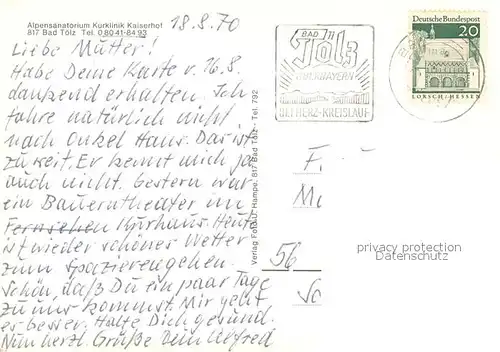 Alpensanatorium Kurklinik Kaiserhof
817 Bad Tölz Tel. 0 80 41-84 93
18.8.70
Liebe Mutter!
Habe Deine Karte v. 16.8.
dankend erhalten. Ich
fahre natürlich nicht
nach Onkel Hans. Das ist
zu weit. Er kennt mich ja
auch nicht. Gestern war
ein Bauerntheater im
Fernsehen Kurhaus. Heute
ist wieder schönes Wetter
zum Spazierengehen.
Schön, daß Du ein paar Tage
zu uns kommst. Mir geht
es besser. Halte Dich gesund.
Nun herzl. Grüße Dein Alfred
Verlag Foto U. Hampe, 817 Bad Tölz - Tel. 792
BAD
Tölz
OBERBAYERN
BEI HERZ-KREISLAUF
Deutsche Bundespost
20
LORSCH/HESSEN
F
M
56
privacy protection
Datenschutz